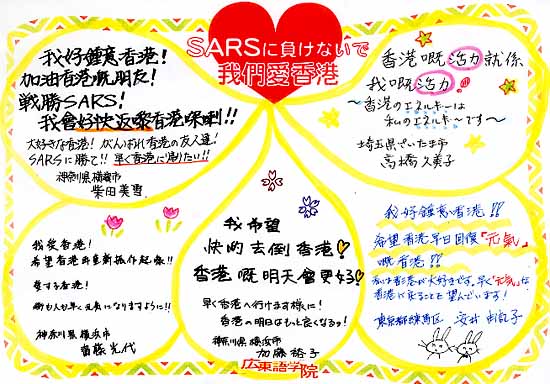 SARSに負けないで
我們愛香港
我好鍾意香港!
加油香港嘅朋友!
戦勝SARS!
我會好快返嚟香港㗎喇!!
大好きな香港! がんばれ香港の友人達!
SARSに勝て!! 早く香港に帰りたい!!
神奈川県横浜市
柴田美雪
香港嘅活力就係
我嘅活力!
〜香港のエネルギーは
私のエネルギーです〜
埼玉県さいたま市
高橋久美子
我愛香港!
希望香港再重新振作起嚟!!
愛する香港!
街も人も早く元気になりますように!!
神奈川県横浜市
斉藤光代
我希望
快的去倒香港!
香港嘅明天會更好!
早く香港へ行けます様に!
香港の明日はもっと良くなるヨ!
神奈川県横浜市
加藤裕子
広東語学院
我好鍾意香港!!
希望香港早日回復「元氣」
嘅香港!!
私は香港が大好きです。早く「元氣」な
香港に戻ることを望んでいます!
東京都練馬区 安井